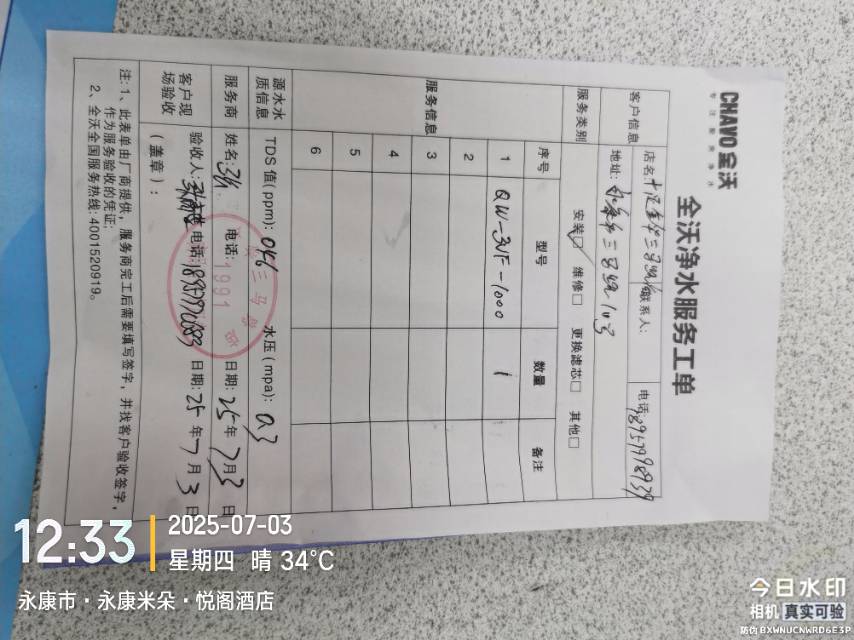 CHAVO全沃
专注健康净水
全沃净水服务工单
客户信息 店名: 联系人: 电话:
地址:
服务类别 安装☑ 维修□ 更换滤芯□ 其他□
服务信息 序号 型号 数量 备注
1 QW-3VF-1000 1
2
3
4
5
6
源水水质信息 TDS值(ppm): 046 水压(mpa): 0.3
服务商 姓名: 电话: 日期: 25年7月3日
客户现场验收 验收人: 电话: 日期: 25年7月3日
(盖章):
1991
注:1、此表单由厂商提供,服务商完工后需要填写签字,并找客户验收签字,
作为服务验收的凭证;
2、全沃全国服务热线:4001520919。
12:33
2025-07-03
星期四 晴 34°C
永康市·永康米朵·悦阁酒店
今日水印
相机 真实可验
防伪 BXWNUCNWRD6E3P